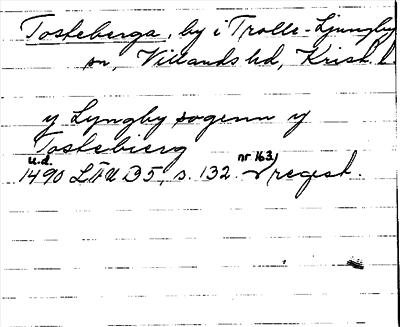 Tosteberga, by i Trolle-Ljungby
sn, Villands hd, Krist. l.
y Lyngby sogenn y
Tostebierg
u.d. nr 163)
1490 LÄU B5, s. 132. regest.